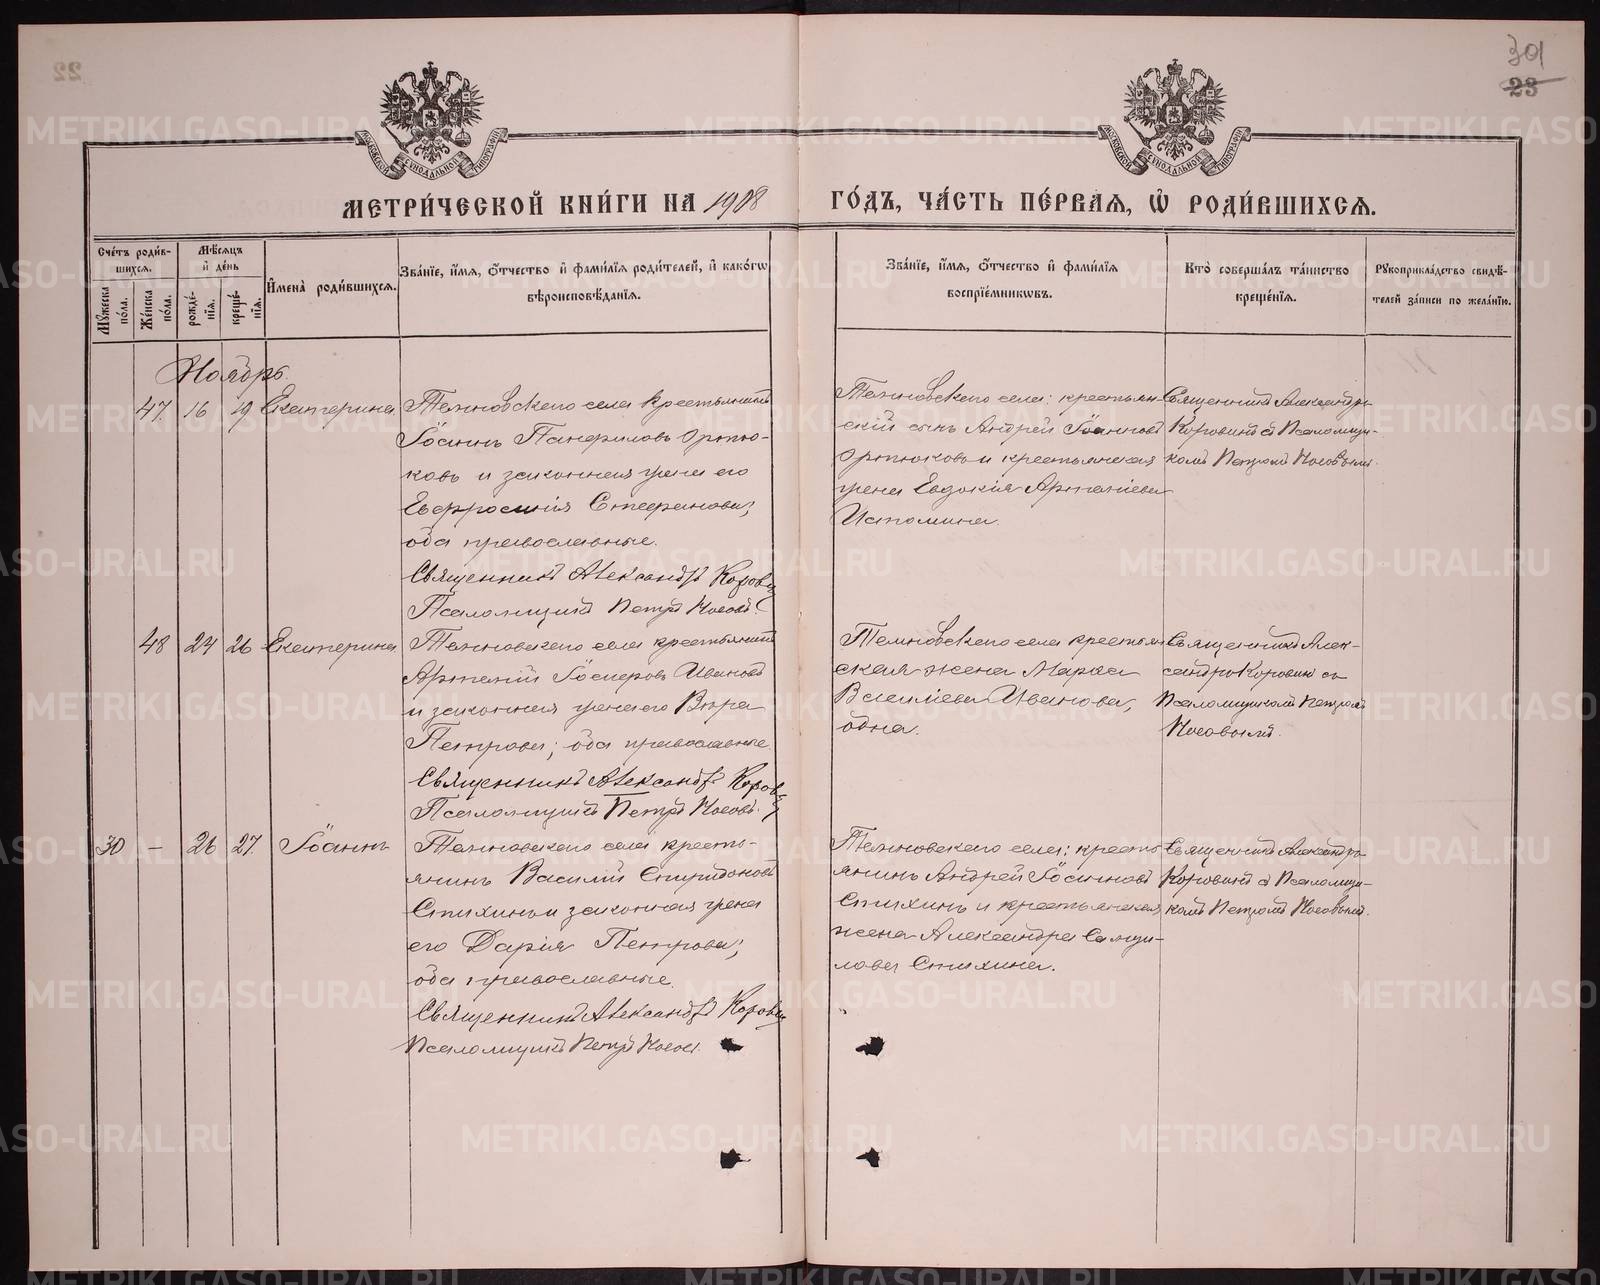 22
301
23
МЕТРИ́ЧЕСКОЙ КНИ́ГИ НА 1908 ГО́ДЪ, ЧА́СТЬ ПЕ́РВАЯ, Ѡ РОДИ́ВШИХСЯ.
Сче́тъ роди́в-
шихся.
Мꙋ́жеска по́ла.
Же́нска по́ла.
Мѣ́сяцъ
и де́нь
рожде́-
нїя.
креще́-
нїя.
И҆мена̀ роди́вшихся.
Зва́нїе, и҆́мя, ѻ҆́тчество и҆ фами́лїя роди́телей, и҆ како́гѡ
вѣроисповѣ́данїя.
Зва́нїе, и҆́мя, ѻ҆́тчество и҆ фами́лїя
воспрїе́мникѡвъ.
Кто̀ соверша́лъ та́инство
креще́нїя.
Рꙋкоприкла́дство свидѣ́-
телей за́писи по жела́нїю.
Ноябрь.
47. 16 19 Екатерина
Темновскаго села крестьянинъ
Іоаннъ Панфиловъ Ортю-
ковъ и законная жена его
Евфросинія Стефанова;
оба православные.
Священникъ Александръ Коровин
Псаломщикъ Петръ Носовъ.
Темновскаго села: крестьян-
скій сынъ Андрей Іоанновъ
Ортюковъ и крестьянская
жена Евдокія Артеміева
Истомина.
Священникъ Александръ
Коровинъ съ Псаломщи-
комъ Петромъ Носовымъ.
48 24 26 Екатерина
Темновскаго села крестьянинъ
Артемій Іосифовъ Ивановъ
и законная жена его Вѣра
Петрова; оба православные.
Священникъ Александръ Коровин
Псаломщикъ Петръ Носовъ.
Темновскаго села крестьян-
ская жена Марѳа
Василіева Иванова,
одна.
Священникъ Алек-
сандръ Коровинъ съ
Псаломщикомъ Петромъ
Носовымъ.
30 – 26 27. Іоаннъ
Темновскаго села кресть-
янинъ Василій Спиридоновъ
Стихинъ и законная жена
его Дарія Петрова;
оба православные.
Священникъ Александръ Коровин
Псаломщикъ Петръ Носов.
Темновскаго села: кресть-
янинъ Андрей Іоанновъ
Стихинъ и крестьянская
жена Александра Самуи-
лова Стихина.
Священникъ Александръ
Коровинъ съ Псаломщи-
комъ Петромъ Носовымъ.
METRIKI.GASO-URAL.RU